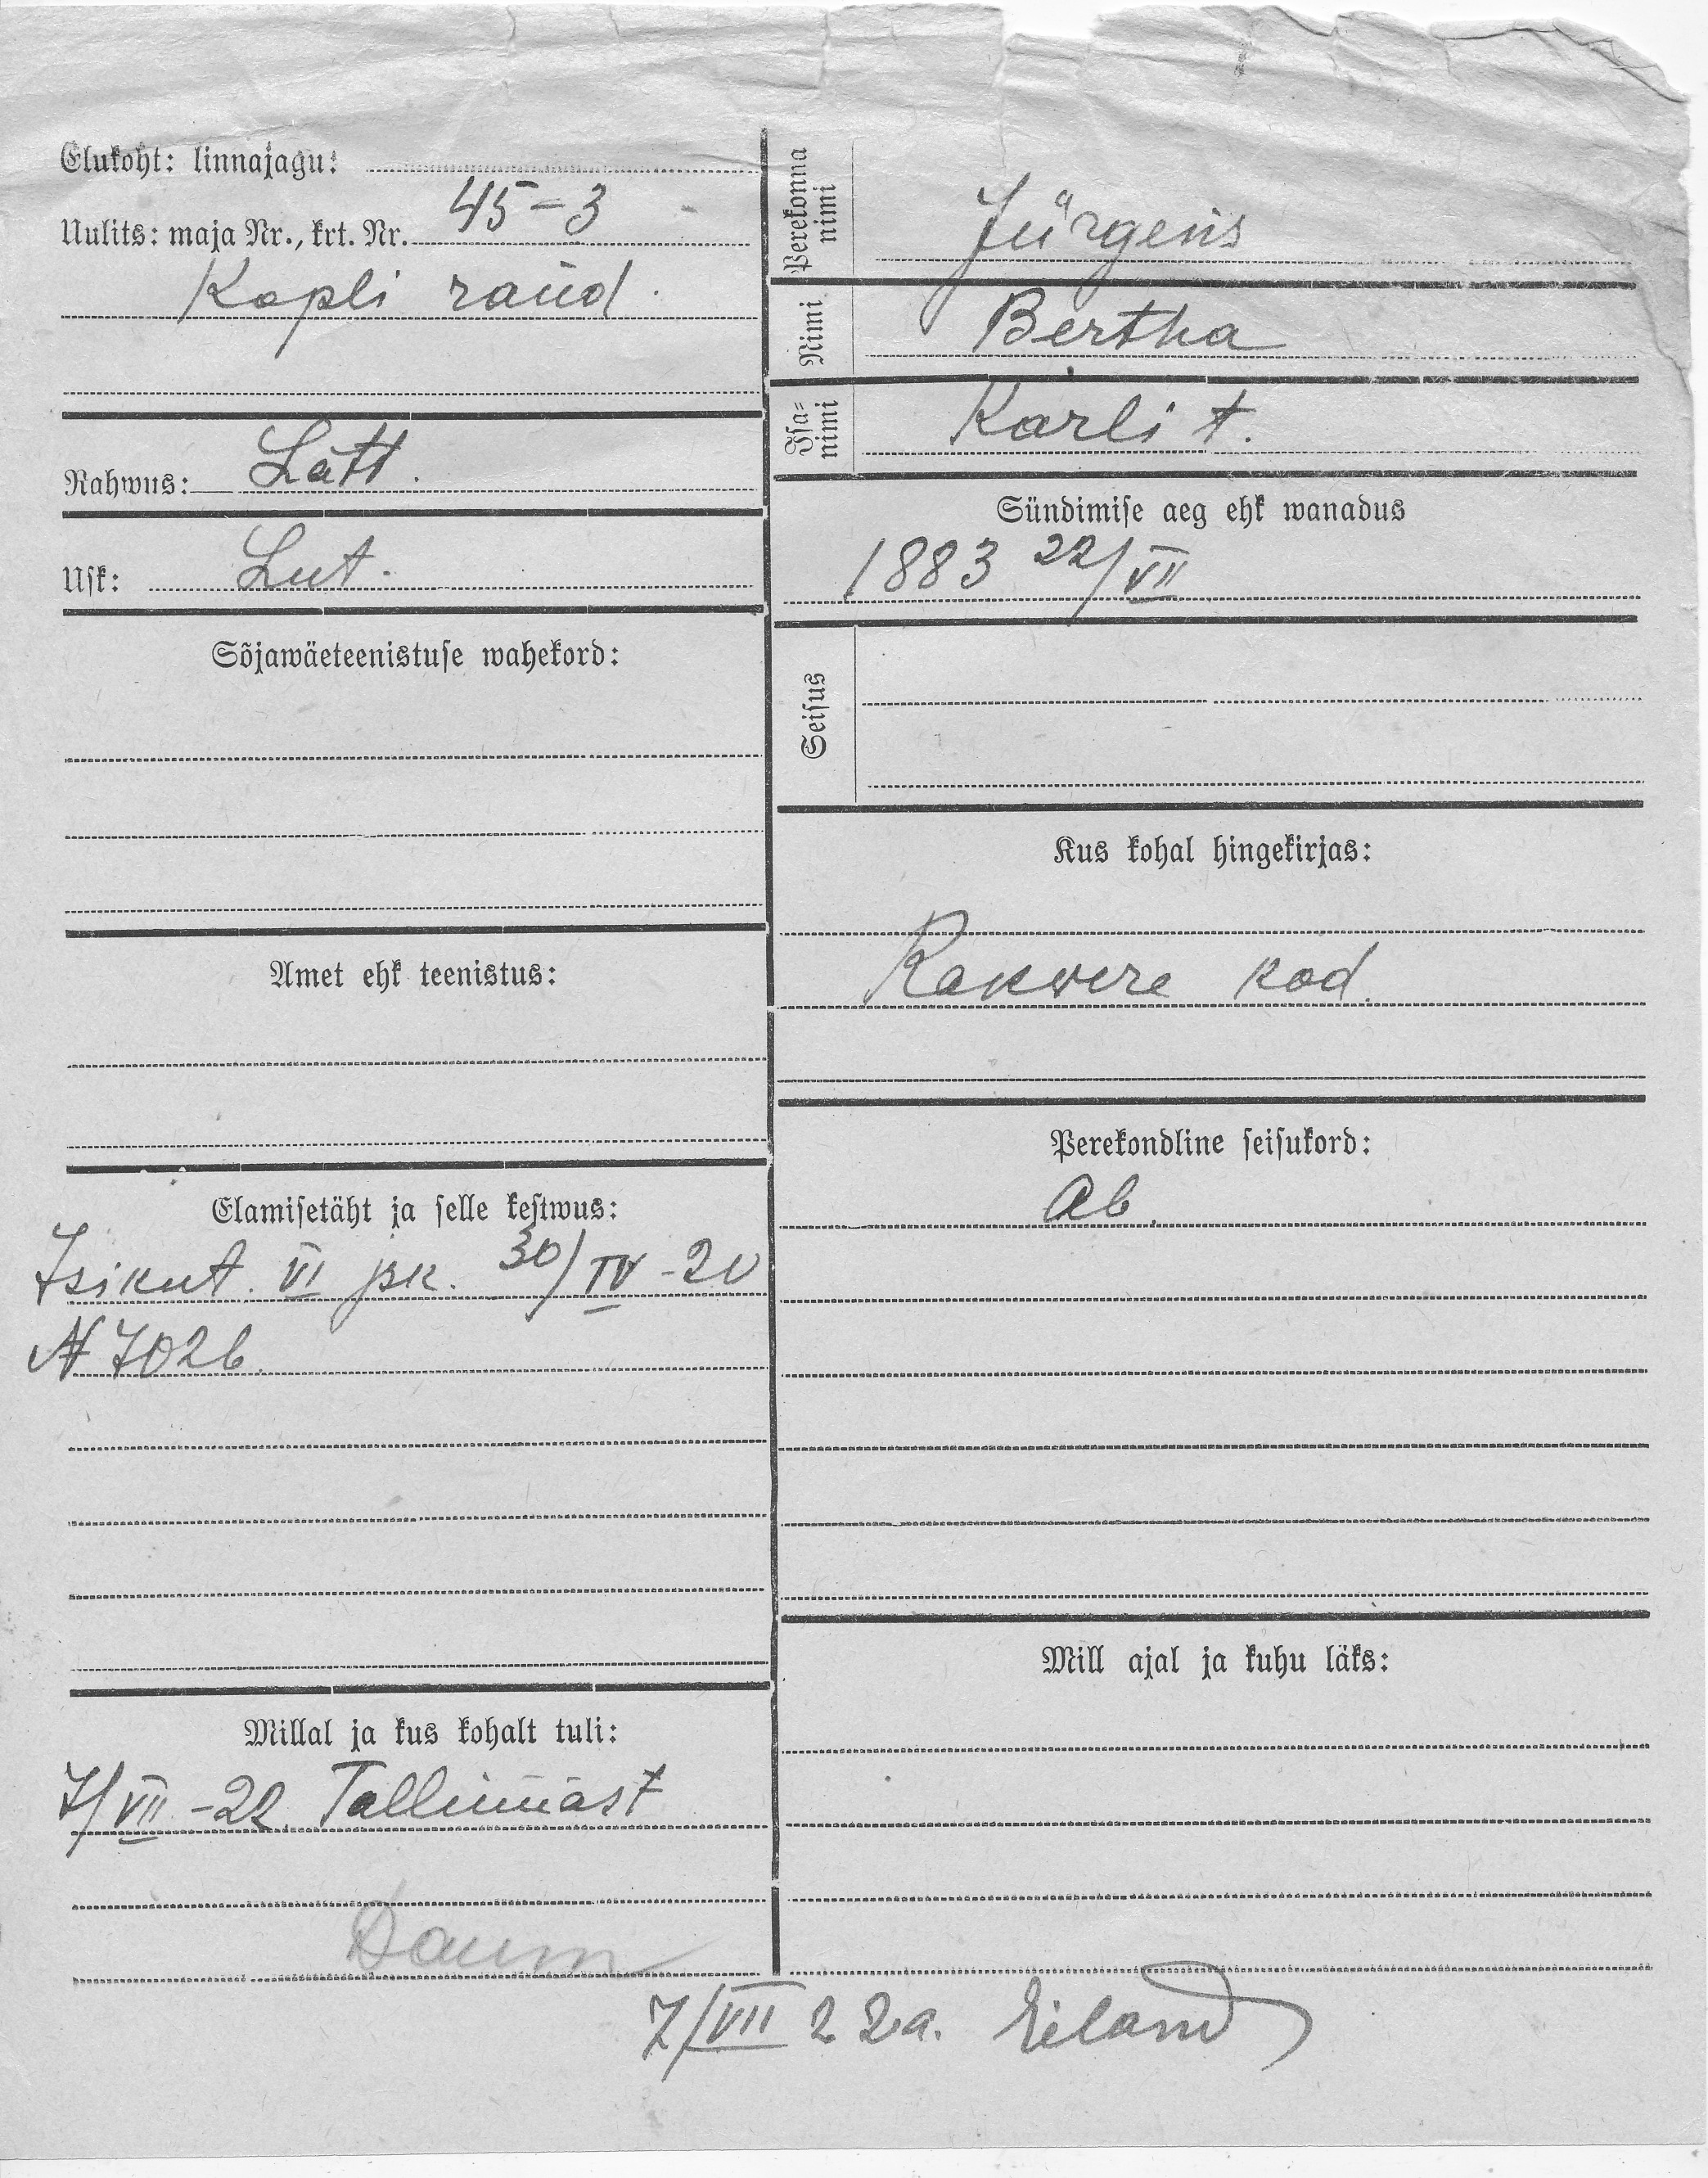 Elukoht: linnajagu:
Uulits: maja Nr., krt. Nr. 45-3
Kopli rand.
Rahwus: Lätt.
Usk: Lut.
Sõjawäeteenistuse wahekord:
Amet ehk teenistus:
Elamisetäht ja selle kestwus:
Isikut. VI jsk. 30/IV -20
N 7026.
Millal ja kus kohalt tuli:
7/VII -22. Tallinnast
Perekonna nimi
Jürgens
Nimi
Bertha
Isa-nimi
Karli t.
Sündimise aeg ehk wanadus
1883 22/VII
Seisus
Kus kohal hingekirjas:
Rakwere kod.
Perekondline seisukord:
Ab.
Mill ajal ja kuhu läks:
7/VII 22a.